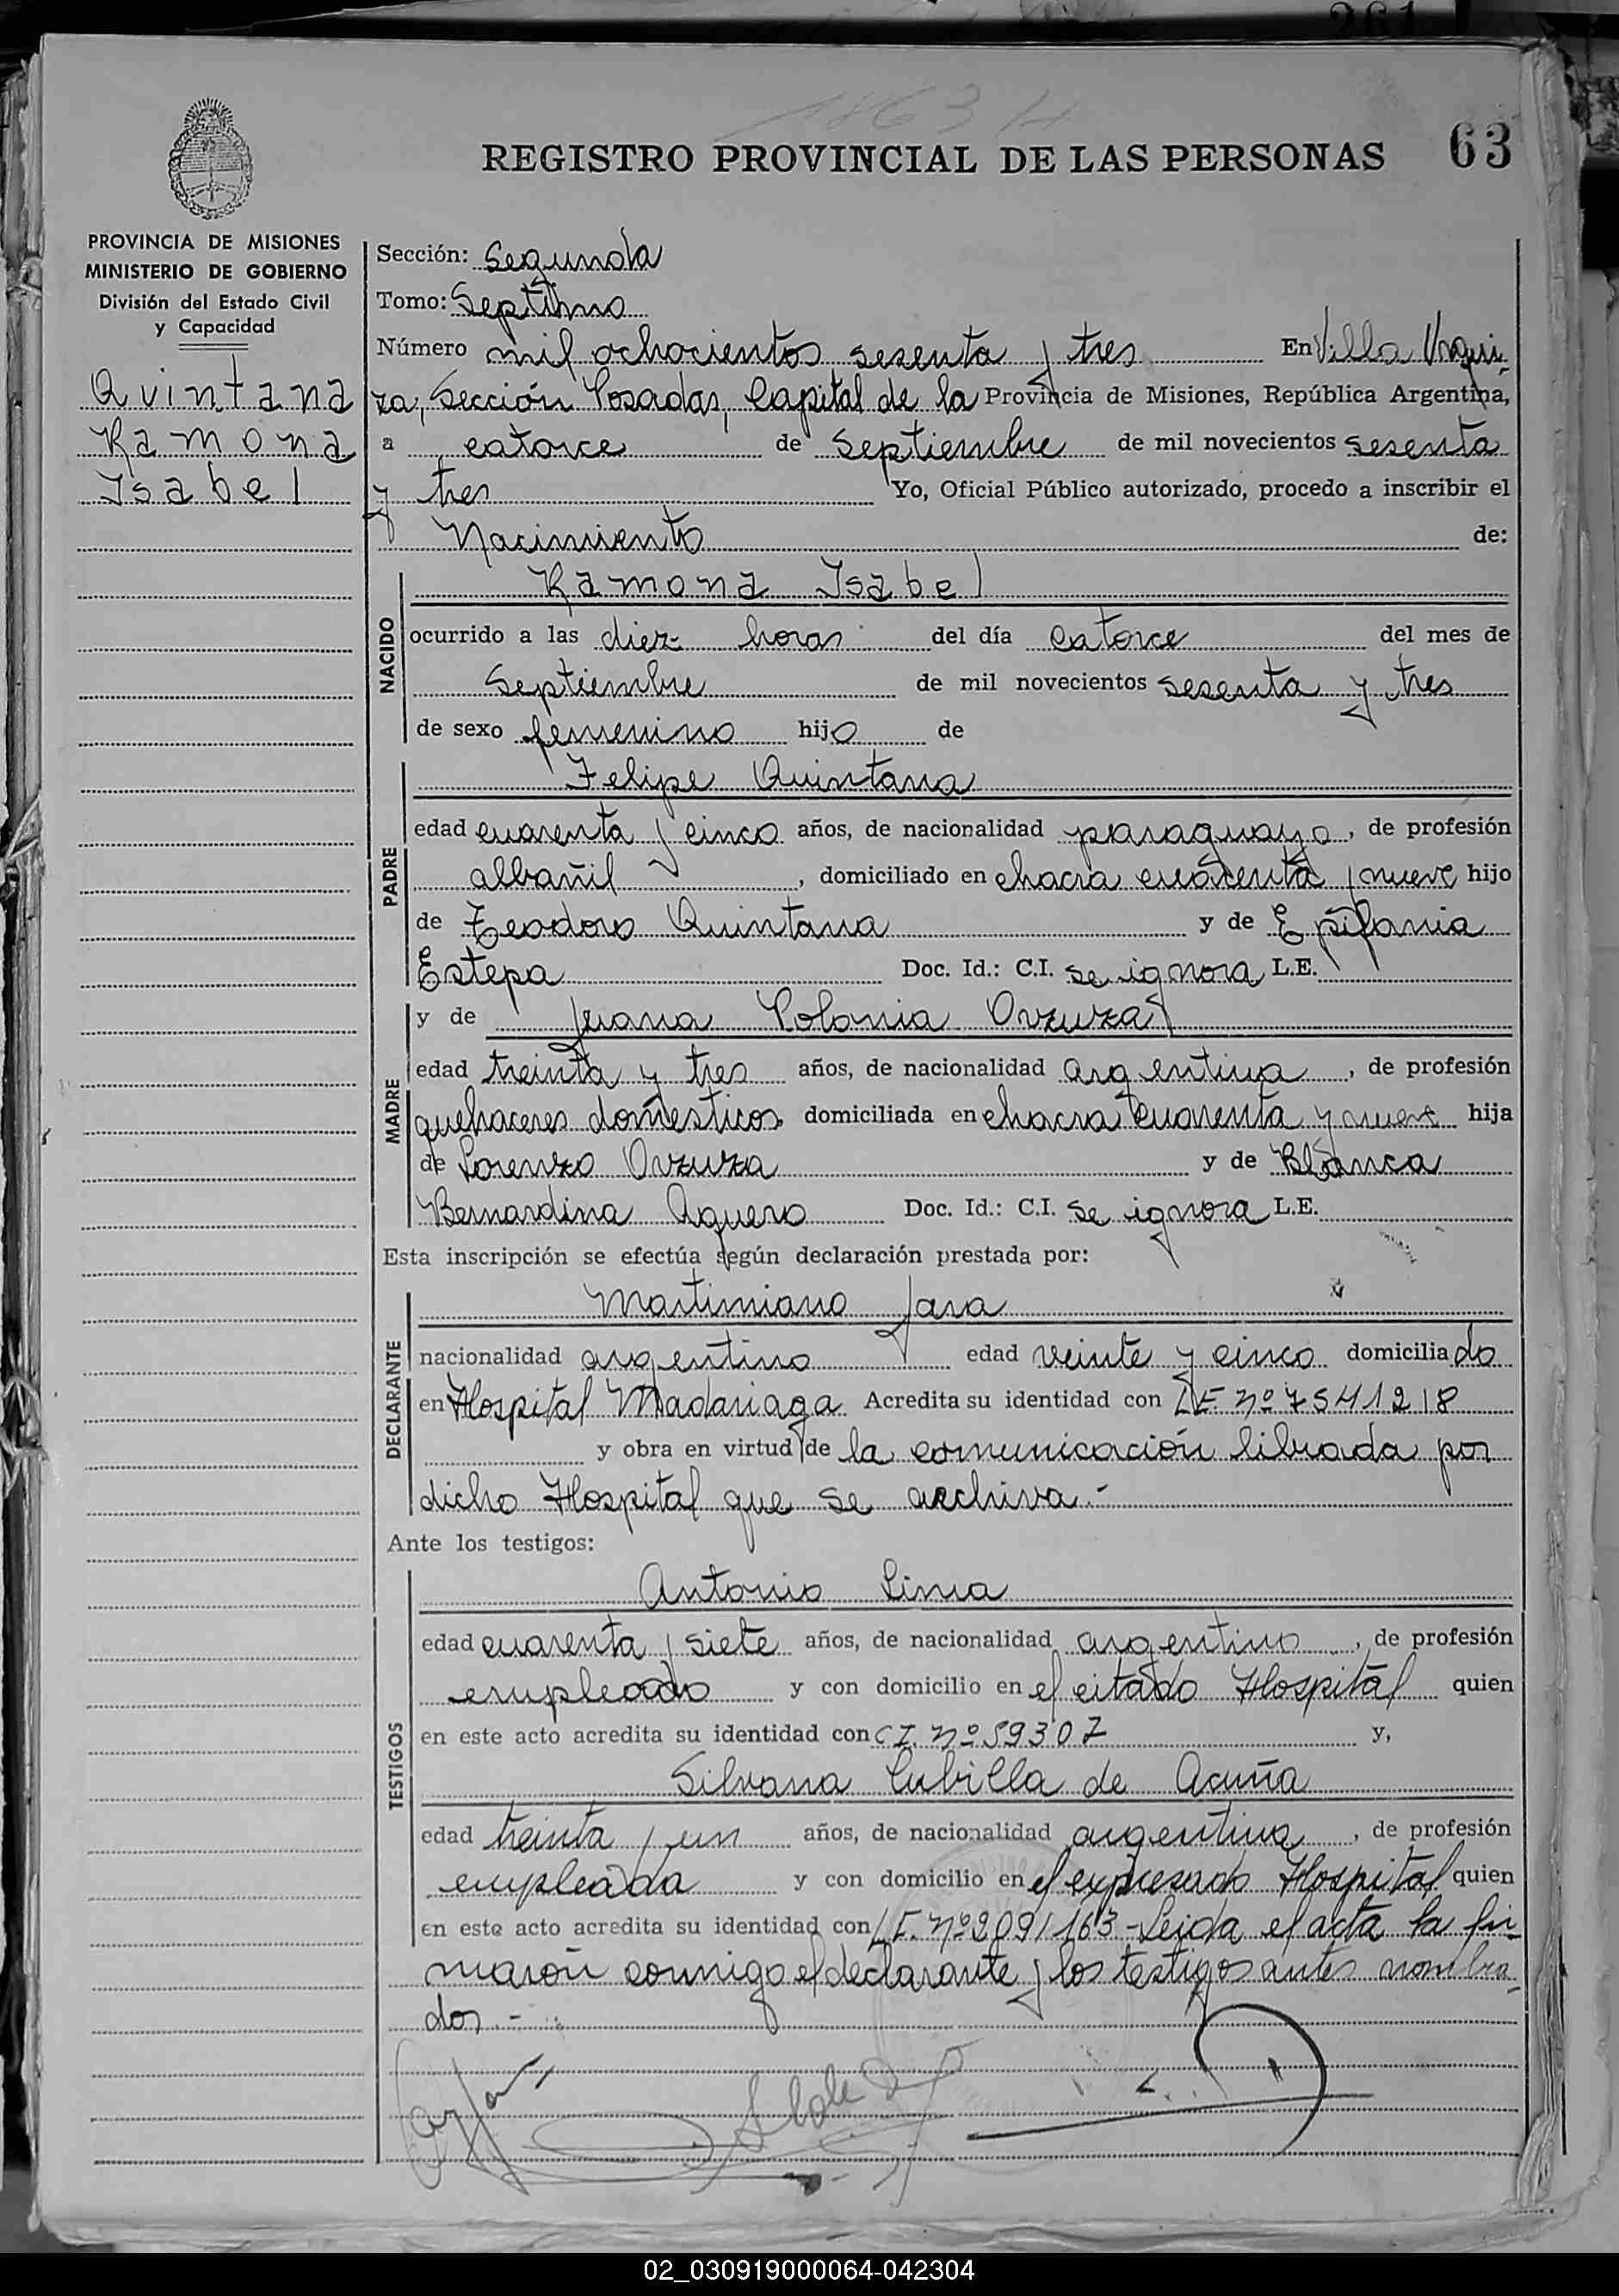 1863 H
REGISTRO PROVINCIAL DE LAS PERSONAS 63
PROVINCIA DE MISIONES
MINISTERIO DE GOBIERNO
División del Estado Civil
y Capacidad
Quintana
Ramona
Isabel
Sección: Segunda
Tomo: Septimo
Número mil ochocientos sesenta y tres En Villa Urqui-
za, Sección Posadas, Capital de la Provincia de Misiones, República Argentina,
a catorce de Septiembre de mil novecientos sesenta
y tres Yo, Oficial Público autorizado, procedo a inscribir el
Nacimiento de:
NACIDO
Ramona Isabel
ocurrido a las diez horas del día catorce del mes de
Septiembre de mil novecientos sesenta y tres
de sexo femenino hijo de
PADRE
Felipe Quintana
edad cuarenta y cinco años, de nacionalidad paraguayo, de profesión
albañil, domiciliado en chacra cuarenta y nueve hijo
de Teodoro Quintana y de Epifania
Estepa Doc. Id.: C.I. se ignora L.E.
MADRE
y de Juana Polonia Ovzuza
edad treinta y tres años, de nacionalidad argentina, de profesión
quehaceres domésticos domiciliada en chacra cuarenta y nueve hija
de Lorenzo Ovzuza y de Blanca
Bernardina Aquero Doc. Id.: C.I. se ignora L.E.
Esta inscripción se efectúa según declaración prestada por:
DECLARANTE
Martimiano Jara
nacionalidad argentino edad veinte y cinco domiciliado
en Hospital Madariaga Acredita su identidad con LE nº 7541218
y obra en virtud de la comunicación librada por
dicho Hospital que se archiva.-
Ante los testigos:
TESTIGOS
Antonio Lima
edad cuarenta y siete años, de nacionalidad argentino, de profesión
empleado y con domicilio en el citado Hospital quien
en este acto acredita su identidad con CI. nº 59307 y,
Silvana Cubilla de Acuña
edad treinta y un años, de nacionalidad argentina, de profesión
empleada y con domicilio en el expresado Hospital quien
en este acto acredita su identidad con LE. nº 2091163-Leida el acta la fir-
maron conmigo el declarante y los testigos antes nombra-
dos.-
02_030919000064-042304